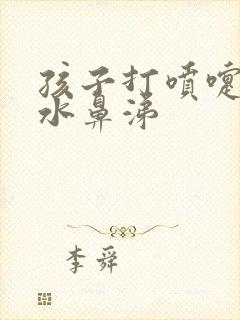 孩子打喷嚏
水鼻涕
李舜